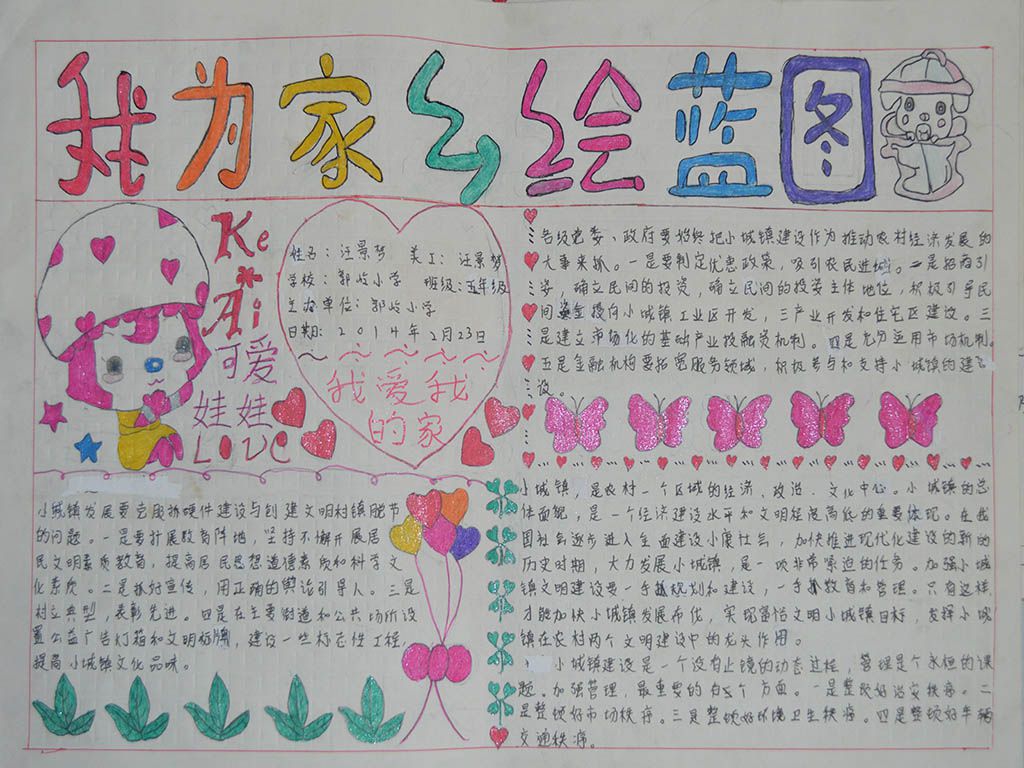 我为家乡绘蓝图
Ke
Ai
可爱
娃娃
LOVE
姓名：汪景梦 美工：汪景梦
学校：郭屹小学 班级：五年级
主办单位：郭屹小学
日期：2014年2月23日
我爱我
的家
各级党委、政府要始终把小城镇建设作为推动农村经济发展的
大事来抓。一是要制定优惠政策，吸引农民进城。二是招商引
资，确立民间的投资，确立民间的投资主体地位，积极引导民
间资金投向小城镇工业区开发，三产业开发和住宅区建设。三
是建立市场化的基础产业投融资机制。四是充分运用市场机制。
五是金融机构要拓宽服务领域，积极参与和支持小城镇的建
设。
小城镇发展要克服抓硬件建设与创建文明村镇脱节
的问题。一是要扩展教育阵地，坚持不懈开展居
民文明素质教育，提高居民思想道德素质和科学文
化素质。二是抓好宣传，用正确的舆论引导人。三是
树立典型，表彰先进。四是在主要街道和公共场所设
置公益广告灯箱和文明标牌，建设一些标志性工程，
提高小城镇文化品味。
小城镇，是农村一个区域的经济、政治、文化中心。小城镇的总
体面貌，是一个经济建设水平和文明程度高低的重要体现。在我
国社会逐步进入全面建设小康社会，加快推进现代化建设的新的
历史时期，大力发展小城镇，是一项非常紧迫的任务。加强小城
镇文明建设要一手抓规划和建设，一手抓教育和管理。只有这样，
才能加快小城镇发展布伐，实现富恰文明小城镇目标，发挥小城
镇在农村两个文明建设中的龙头作用。
小城镇建设是一个没有止境的动态过程，管理是个永恒的课
题。加强管理，最重要的有5个方面。一是整顿好治安秩序。二
是整顿好市场秩序。三是整顿好环境卫生秩序。四是整顿好车辆
交通秩序。